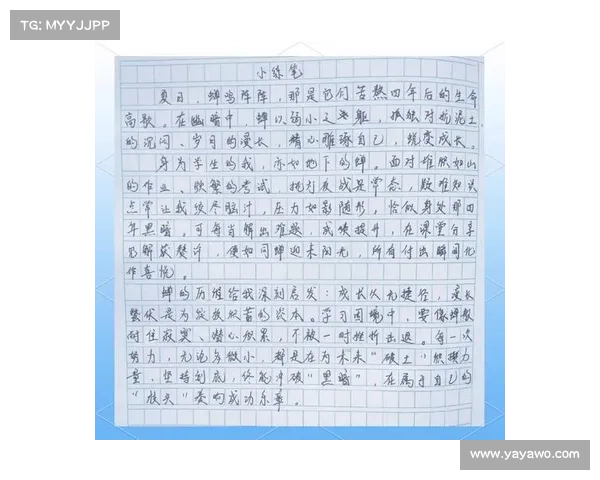 TG: MYYJJPP
小练笔
夏日，蝉鸣阵阵，那是它们苦熬四年后的生命
高歌。在幽暗中，蝉以弱小之躯，孤独对抗泥土
的沉闷、岁月的漫长，精心雕琢自己，蜕变成长。
身为学生的我，亦如地下的蝉。面对堆积如山
的作业、频繁的考试，挑灯夜战是常态，疑难知识
点常让我绞尽脑汁，压力如影随形，恰似身处那四
年黑暗。可每当解出难题，成绩提升，在课堂分享
见解获赞许，便如同蝉迎来阳光，所有付出瞬间化
作喜悦。
蝉的历程给我深刻启发：成长从无捷径，漫长
蛰伏是为绽放积蓄的资本。学习困境中，要像蝉般
耐住寂寞、潜心积累，不被一时挫折击退。每一次
努力，无论多微小，都是在为未来“破土”积攒力
量，坚持到底，终能冲破“黑暗”，在属于自己的
“枝头”奏响成功乐章。
www.yayawo.com